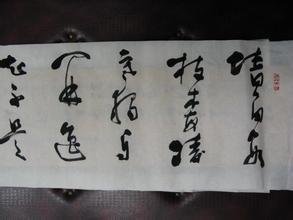 墙角数
枝梅凌
寒独自
開遥
知不是